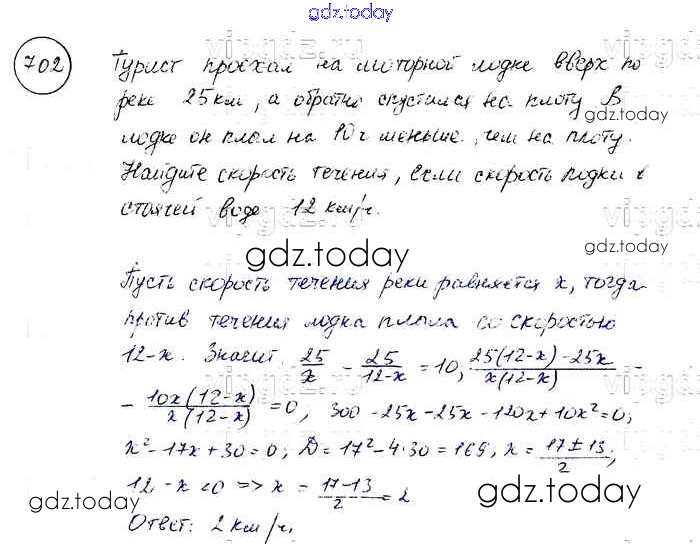 gdz.today
702 Турист проехал на моторной лодке вверх по
реке 25 км, а обратно спустился на плоту. В
лодке он плыл на 10 ч меньше, чем на плоту.
Найдите скорость течения, если скорость лодки в
стоячей воде 12 км/ч.
gdz.today
gdz.today
Пусть скорость течения реки равняется x, тогда
против течения лодка плыла со скоростью
12-x. Значит 25/x - 25/(12-x) = 10, (25(12-x)-25x)/(x(12-x)) -
- 10x(12-x)/(x(12-x)) = 0, 300-25x-25x-120x+10x²=0,
x²-17x+30=0, D=17²-4·30=169, x = (17±13)/2,
12-x<0 => x = (17-13)/2 = 2
Ответ: 2 км/ч.
gdz.today
gdz.today
gdz.today